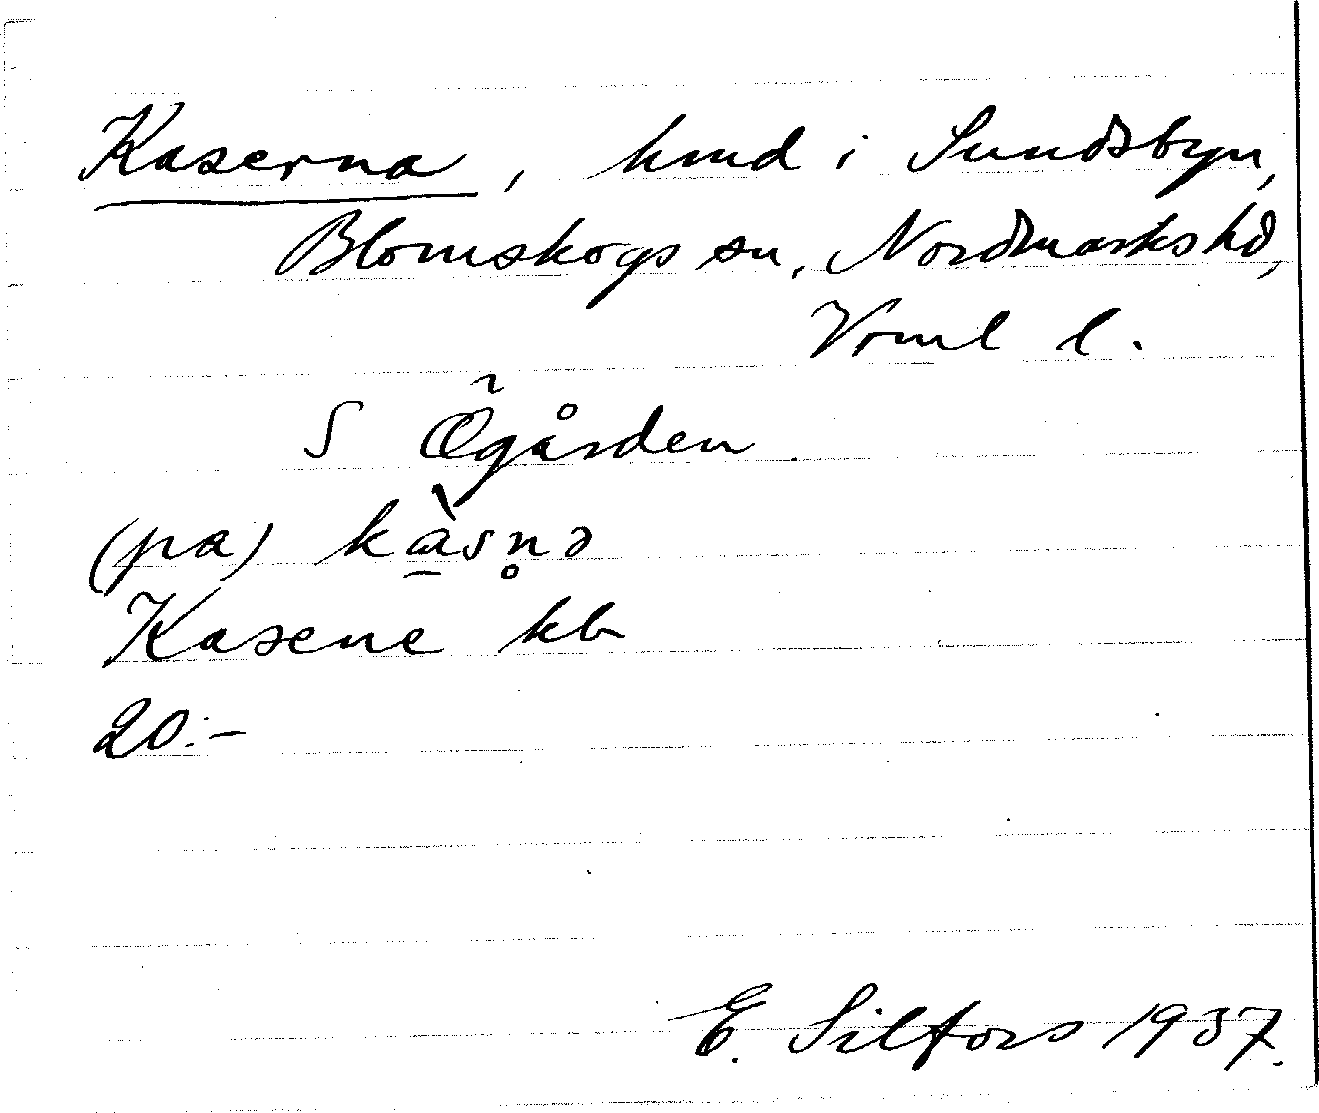 Kaserna, hmd i Sundsbyn,
Blomskogs sn, Nordmarks hd,
Vrml l.
S Ögården
(pa) kàsn̥ə
Kasene kb
20:-
E. Silfors 1937.